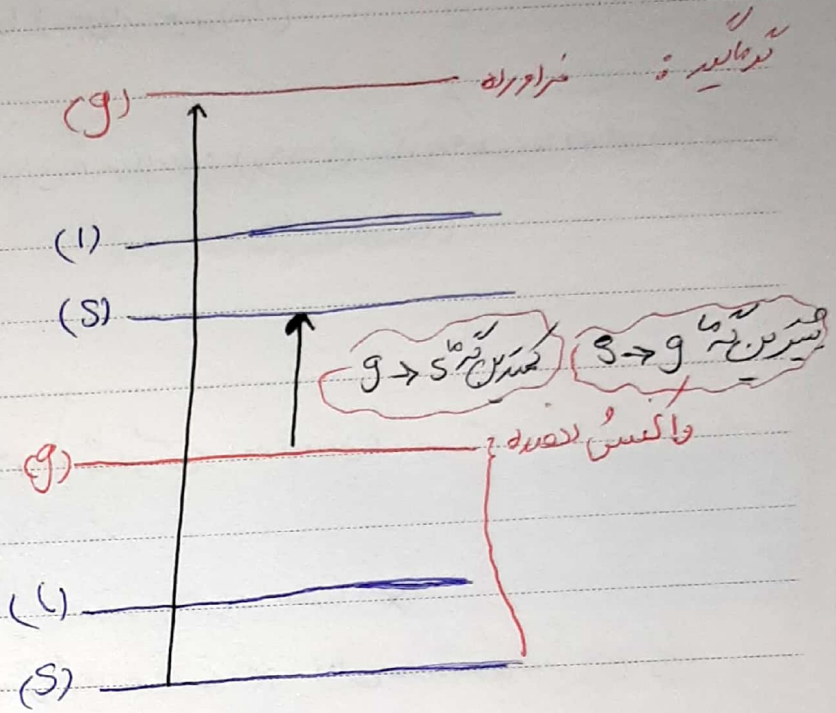 گرماگیر : فراورده
(g)
(l)
(S)
بیشترین گرما S → g
کمترین گرما g → S
(g) واکنش دهنده
(l)
(S)